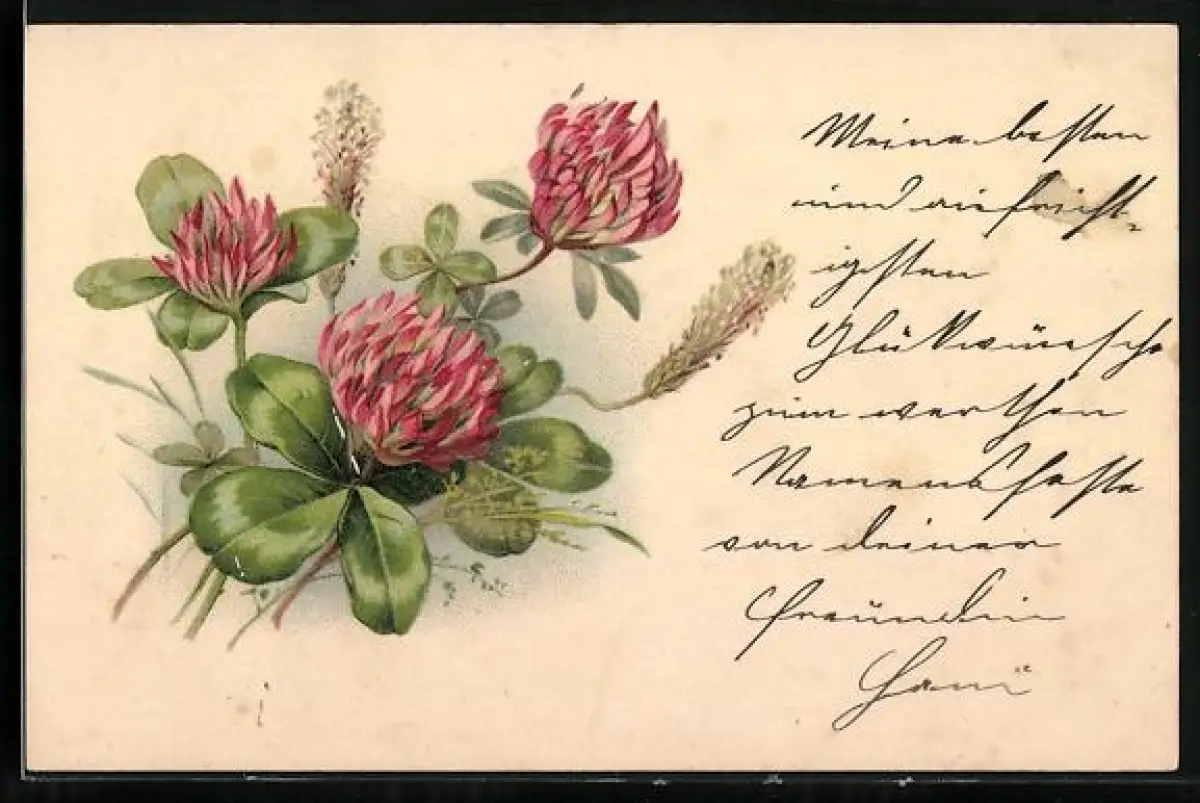 Meine besten
und aufricht
igsten
Glükwünsche
zum werthen
Namensfeste
von deiner
Freundin